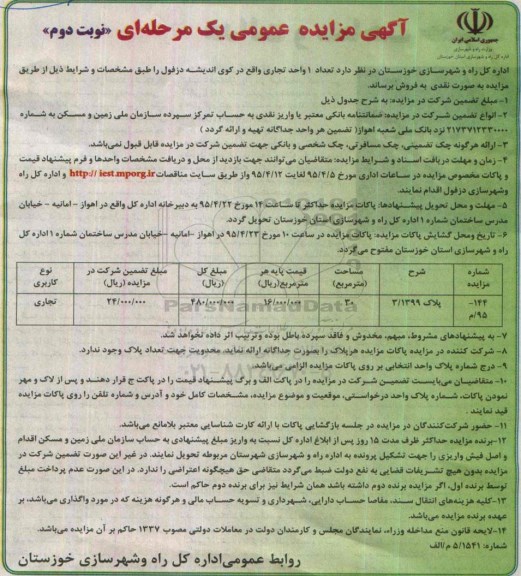 جمهوری اسلامی ایران
وزارت راه و شهرسازی
اداره کل راه و شهرسازی استان خوزستان
آگهی مزایده عمومی یک مرحله‌ای «نوبت دوم»
اداره کل راه و شهرسازی خوزستان در نظر دارد تعداد ۱ واحد تجاری واقع در کوی اندیشه دزفول را طبق مشخصات و شرایط ذیل از طریق
مزایده به صورت نقدی به فروش برساند.
۱- مبلغ تضمین شرکت در مزایده: به شرح جدول ذیل
۲- انواع تضمین شرکت در مزایده: ضمانتنامه بانکی معتبر یا واریز نقدی به حساب تمرکز سپرده سازمان ملی زمین و مسکن به شماره
۲۱۷۳۷۱۲۳۳۰۰۰۰ نزد بانک ملی شعبه اهواز( تضمین هر واحد جداگانه تهیه و ارائه گردد )
۳- ارائه هرگونه چک تضمینی، چک مسافرتی، چک شخصی و بانکی جهت تضمین شرکت در مزایده قابل قبول نمی‌باشد.
۴- زمان و مهلت دریافت اسناد و شرایط مزایده: متقاضیان می توانند جهت بازدید از محل و دریافت مشخصات واحدها و فرم پیشنهاد قیمت
و پاکات مخصوص مزایده در ساعات اداری مورخ ۹۵/۴/۵ لغایت ۹۵/۴/۱۲ و از طریق سایت مناقصات http:// iest.mporg.ir و اداره کل راه
وشهرسازی دزفول اقدام نمایند.
۵- مهلت و محل تحویل پیشنهادها: پاکات مزایده حداکثر تا ساعت ۱۴ مورخ ۹۵/۴/۲۲ به دبیرخانه اداره کل واقع در اهواز -امانیه - خیابان
مدرس ساختمان شماره ۱ اداره کل راه و شهرسازی استان خوزستان تحویل گردد.
۶- تاریخ ومحل گشایش پاکات مزایده: پاکات مزایده در ساعت ۱۰ مورخ ۹۵/۴/۲۳ در اهواز -امانیه -خیابان مدرس ساختمان شماره ۱ اداره کل
راه و شهرسازی استان خوزستان مفتوح می‌گردد.
شماره مزایده | شرح | مساحت (مترمربع) | قیمت پایه هر مترمربع(ریال) | مبلغ کل (ریال) | مبلغ تضمین شرکت در مزایده (ریال) | نوع کاربری
۱۴۴-۹۵/م | پلاک ۳/۱۳۹۹ | ۳۰ | ۱۶/۰۰۰/۰۰۰ | ۴۸۰/۰۰۰/۰۰۰ | ۲۴/۰۰۰/۰۰۰ | تجاری
ParsNamadData
۷- به پیشنهادهای مشروط، مبهم، مخدوش و فاقد سپرده باطل بوده وترتیب اثر داده نخواهد شد.
۸- شرکت کننده در مزایده پاکات مزایده هرپلاک را بصورت جداگانه ارائه نماید. محدودیت جهت تعداد پلاک وجود ندارد.
۹- درج شماره پلاک واحد انتخابی بر روی پاکات مزایده الزامی می‌باشد.
۱۰- متقاضیان می‌بایست تضمین شرکت در مزایده را در پاکت الف و برگ پیشنهاد قیمت را در پاکت ج قرار دهند و پس از لاک و مهر
نمودن پاکات، شماره پلاک واحد درخواستی، موقعیت و موضوع مزایده، مشخصات کامل خود و آدرس و شماره تلفن را روی پاکات مزایده
قید نمایند .
۱۱- حضور شرکت‌کنندگان در مزایده در جلسه بازگشایی پاکات با ارائه کارت شناسایی معتبر بلامانع می‌باشد.
۱۲-برنده مزایده حداکثر ظرف مدت ۱۵ روز پس از ابلاغ اداره کل نسبت به واریز مبلغ پیشنهادی به حساب سازمان ملی زمین و مسکن اقدام
و اصل فیش واریزی را جهت تشکیل پرونده به اداره راه و شهرسازی شهرستان مربوطه تحویل نمایند. در غیر این صورت تضمین شرکت در
مزایده بدون هیچ تشریفات قضایی به نفع دولت ضبط می‌گردد متقاضی حق هیچگونه اعتراضی را ندارد. در این صورت عدم پرداخت مبلغ
توسط برنده اول، اگر مزایده برنده دوم داشته باشد همان شرایط نیز برای برنده دوم حاکم است.
۱۳-کلیه هزینه‌های انتقال سند، مفاصا حساب دارایی، شهرداری و تسویه حساب مالی و هرگونه هزینه که در مورد واگذاری می‌باشد، بر
عهده برنده مزایده می‌باشد.
۱۴-لایحه قانون منع مداخله وزراء، نمایندگان مجلس و کارمندان دولت در معاملات دولتی مصوب ۱۳۳۷ حاکم بر آن مزایده می‌باشد.
شماره: ۵/۱۵۴۱ م/الف
روابط عمومی اداره کل راه وشهرسازی خوزستان